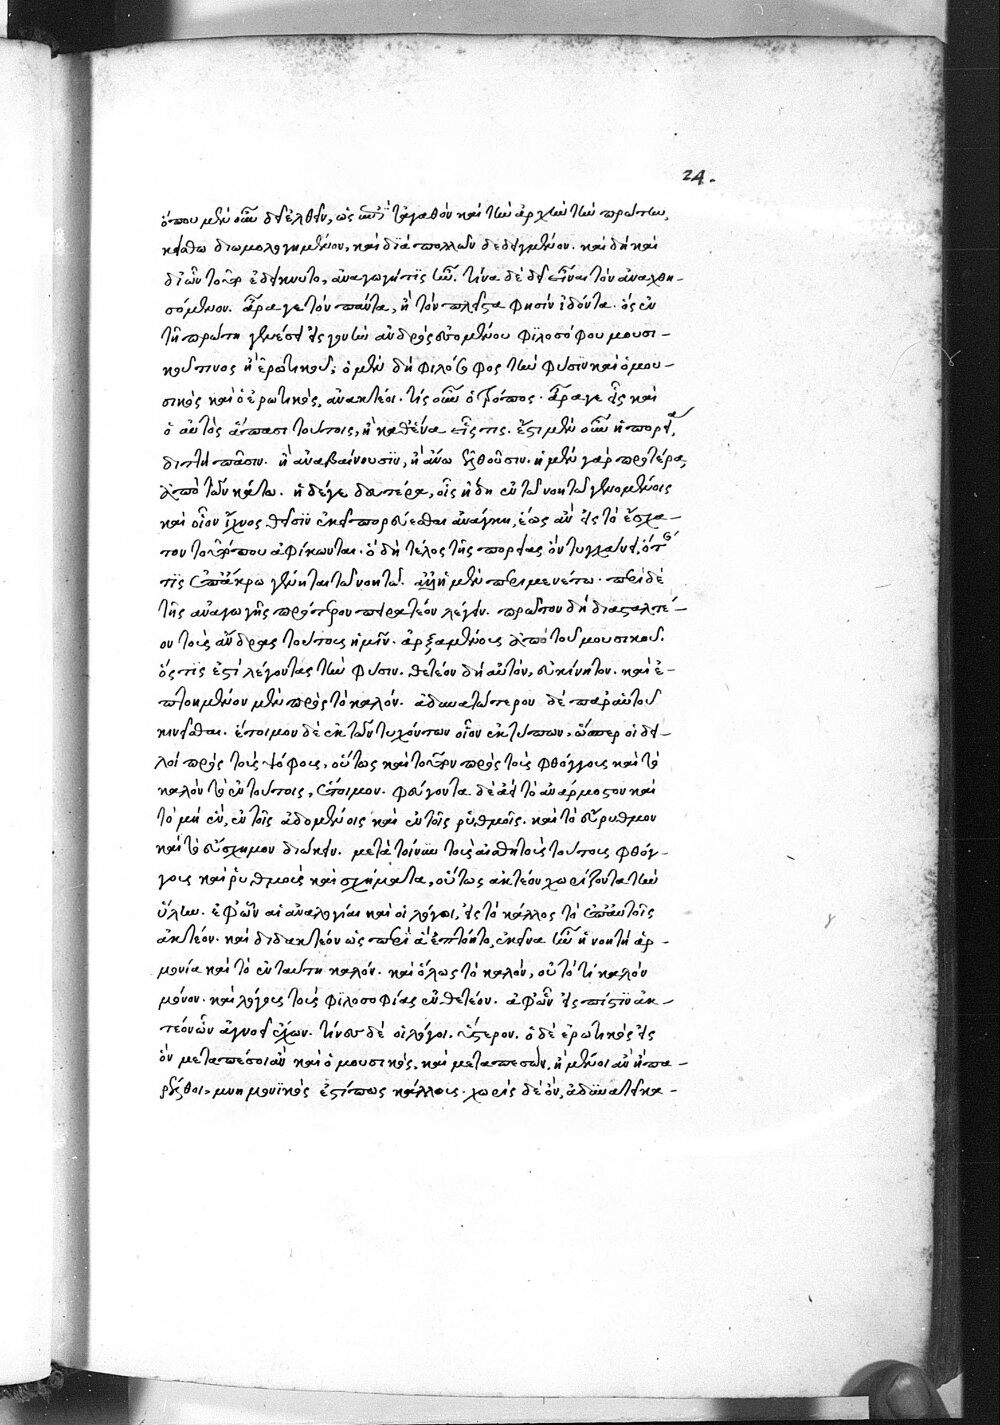 24.
ὅπου μὲν οὖν δεῖ ἐλθεῖν, ὡς ἐπὶ τἀγαθὸν καὶ τὴν ἀρχὴν τὴν πρώτην,
κείσθω διωμολογημένον, καὶ διὰ πολλῶν δεδειγμένον. καὶ δὴ καὶ
δι' ὧν τοῦτο ἐδείκνυτο, ἀναγωγή τις ἦν. τίνα δὲ δεῖ εἶναι τὸν ἀναχθη-
σόμενον. ἆρά γε τὸν πάντα, ἢ τὸν πλεῖστα φησὶν ἰδόντα. ὃς ἐν
τῇ πρώτῃ γενέσει εἰς γονὴν ἀνδρὸς ἐσομένου φιλοσόφου μουσι-
κοῦ τινος ἢ ἐρωτικοῦ; ὁ μὲν δὴ φιλόσοφος τὴν φύσιν καὶ ὁ μου-
σικὸς καὶ ὁ ἐρωτικὸς, ἀνακτέοι. τίς οὖν ὁ τρόπος. ἆρά γε εἷς καὶ
ὁ αὐτὸς ἅπασι τούτοις, ἢ καθένα εἷς τις. ἔστι μὲν οὖν ἡ πορεία,
διττὴ πᾶσιν. ἢ ἀναβαίνουσιν, ἢ ἄνω ἐλθοῦσιν. ἡ μὲν γὰρ προτέρα,
ἀπὸ τῶν κάτω. ἡ δέ γε δευτέρα, οἷς ἤδη ἐν τῷ νοητῷ γενομένοις
καὶ οἷον ἴχνος θεῖσιν ἐκεῖ πορεύεσθαι ἀνάγκη, ἕως ἂν εἰς τὸ ἔσχα-
τον τοῦ τόπου ἀφίκωνται. ὃ δὴ τέλος τῆς πορείας ὂν τυγχάνει, ὅταν
τις ἐπ' ἄκρῳ γένηται τῷ νοητῷ. ἀλλ' ἡ μὲν περιμενέτω. περὶ δὲ
τῆς ἀναγωγῆς πρότερον πειρατέον λέγειν. πρῶτον δὴ διασταλτέ-
ον τοὺς ἄνδρας τούτους ἡμῖν. ἀρξαμένους ἀπὸ τοῦ μουσικοῦ.
ὅστις ἐστὶ λέγοντας τὴν φύσιν. θετέον δὴ αὐτὸν, εὐκίνητον. καὶ ἐ-
πτοημένον μὲν πρὸς τὸ καλόν. ἀδυνατώτερον δὲ παρ' αὑτοῦ
κινεῖσθαι. ἕτοιμον δὲ ἐκ τῶν τυχόντων οἷον ἐκτύπων, ὥσπερ οἱ δει-
λοὶ πρὸς τοὺς ψόφους, οὕτως καὶ τοῦτον πρὸς τοὺς φθόγγους καὶ τὸ
καλὸν τὸ ἐν τούτοις, ἕτοιμον. φεύγοντα δὲ ἀεὶ τὸ ἀνάρμοστον καὶ
τὸ μὴ ἓν, ἐν τοῖς ἀδομένοις καὶ ἐν τοῖς ῥυθμοῖς. καὶ τὸ εὔρυθμον
καὶ τὸ εὔσχημον διώκειν. μετὰ τοίνυν τοὺς αἰσθητοὺς τούτους φθόγ-
γους καὶ ῥυθμοὺς καὶ σχήματα, οὕτως ἀκτέον χωρίζοντα τὴν
ὕλην. ἐφ' ὧν αἱ ἀναλογίαι καὶ οἱ λόγοι, εἰς τὸ κάλλος τὸ ἐπ' αὐτοῖς
ἀκτέον. καὶ διδακτέον ὡς περὶ ἃ ἐπτόητο, ἐκεῖνα ἦν ἡ νοητὴ ἁρ-
μονία καὶ τὸ ἐν ταύτῃ καλόν. καὶ ὅλως τὸ καλὸν, οὐ τὸ τὶ καλὸν
μόνον. καὶ λόγους τοὺς φιλοσοφίας ἐνθετέον. ἀφ' ὧν εἰς πίστιν ἀκ-
τέον ὧν ἀγνοεῖ ἔχων. τίνες δὲ οἱ λόγοι, ὕστερον. ὁ δὲ ἐρωτικὸς εἰς
ὃν μεταπέσοι ἂν καὶ ὁ μουσικὸς, καὶ μεταπεσὼν, ἢ μένοι ἂν ἢ πα-
ρέλθοι, μνημονικὸς ἐστί πως κάλλους. χωρὶς δὲ ὂν, ἀδυνατεῖ κα-